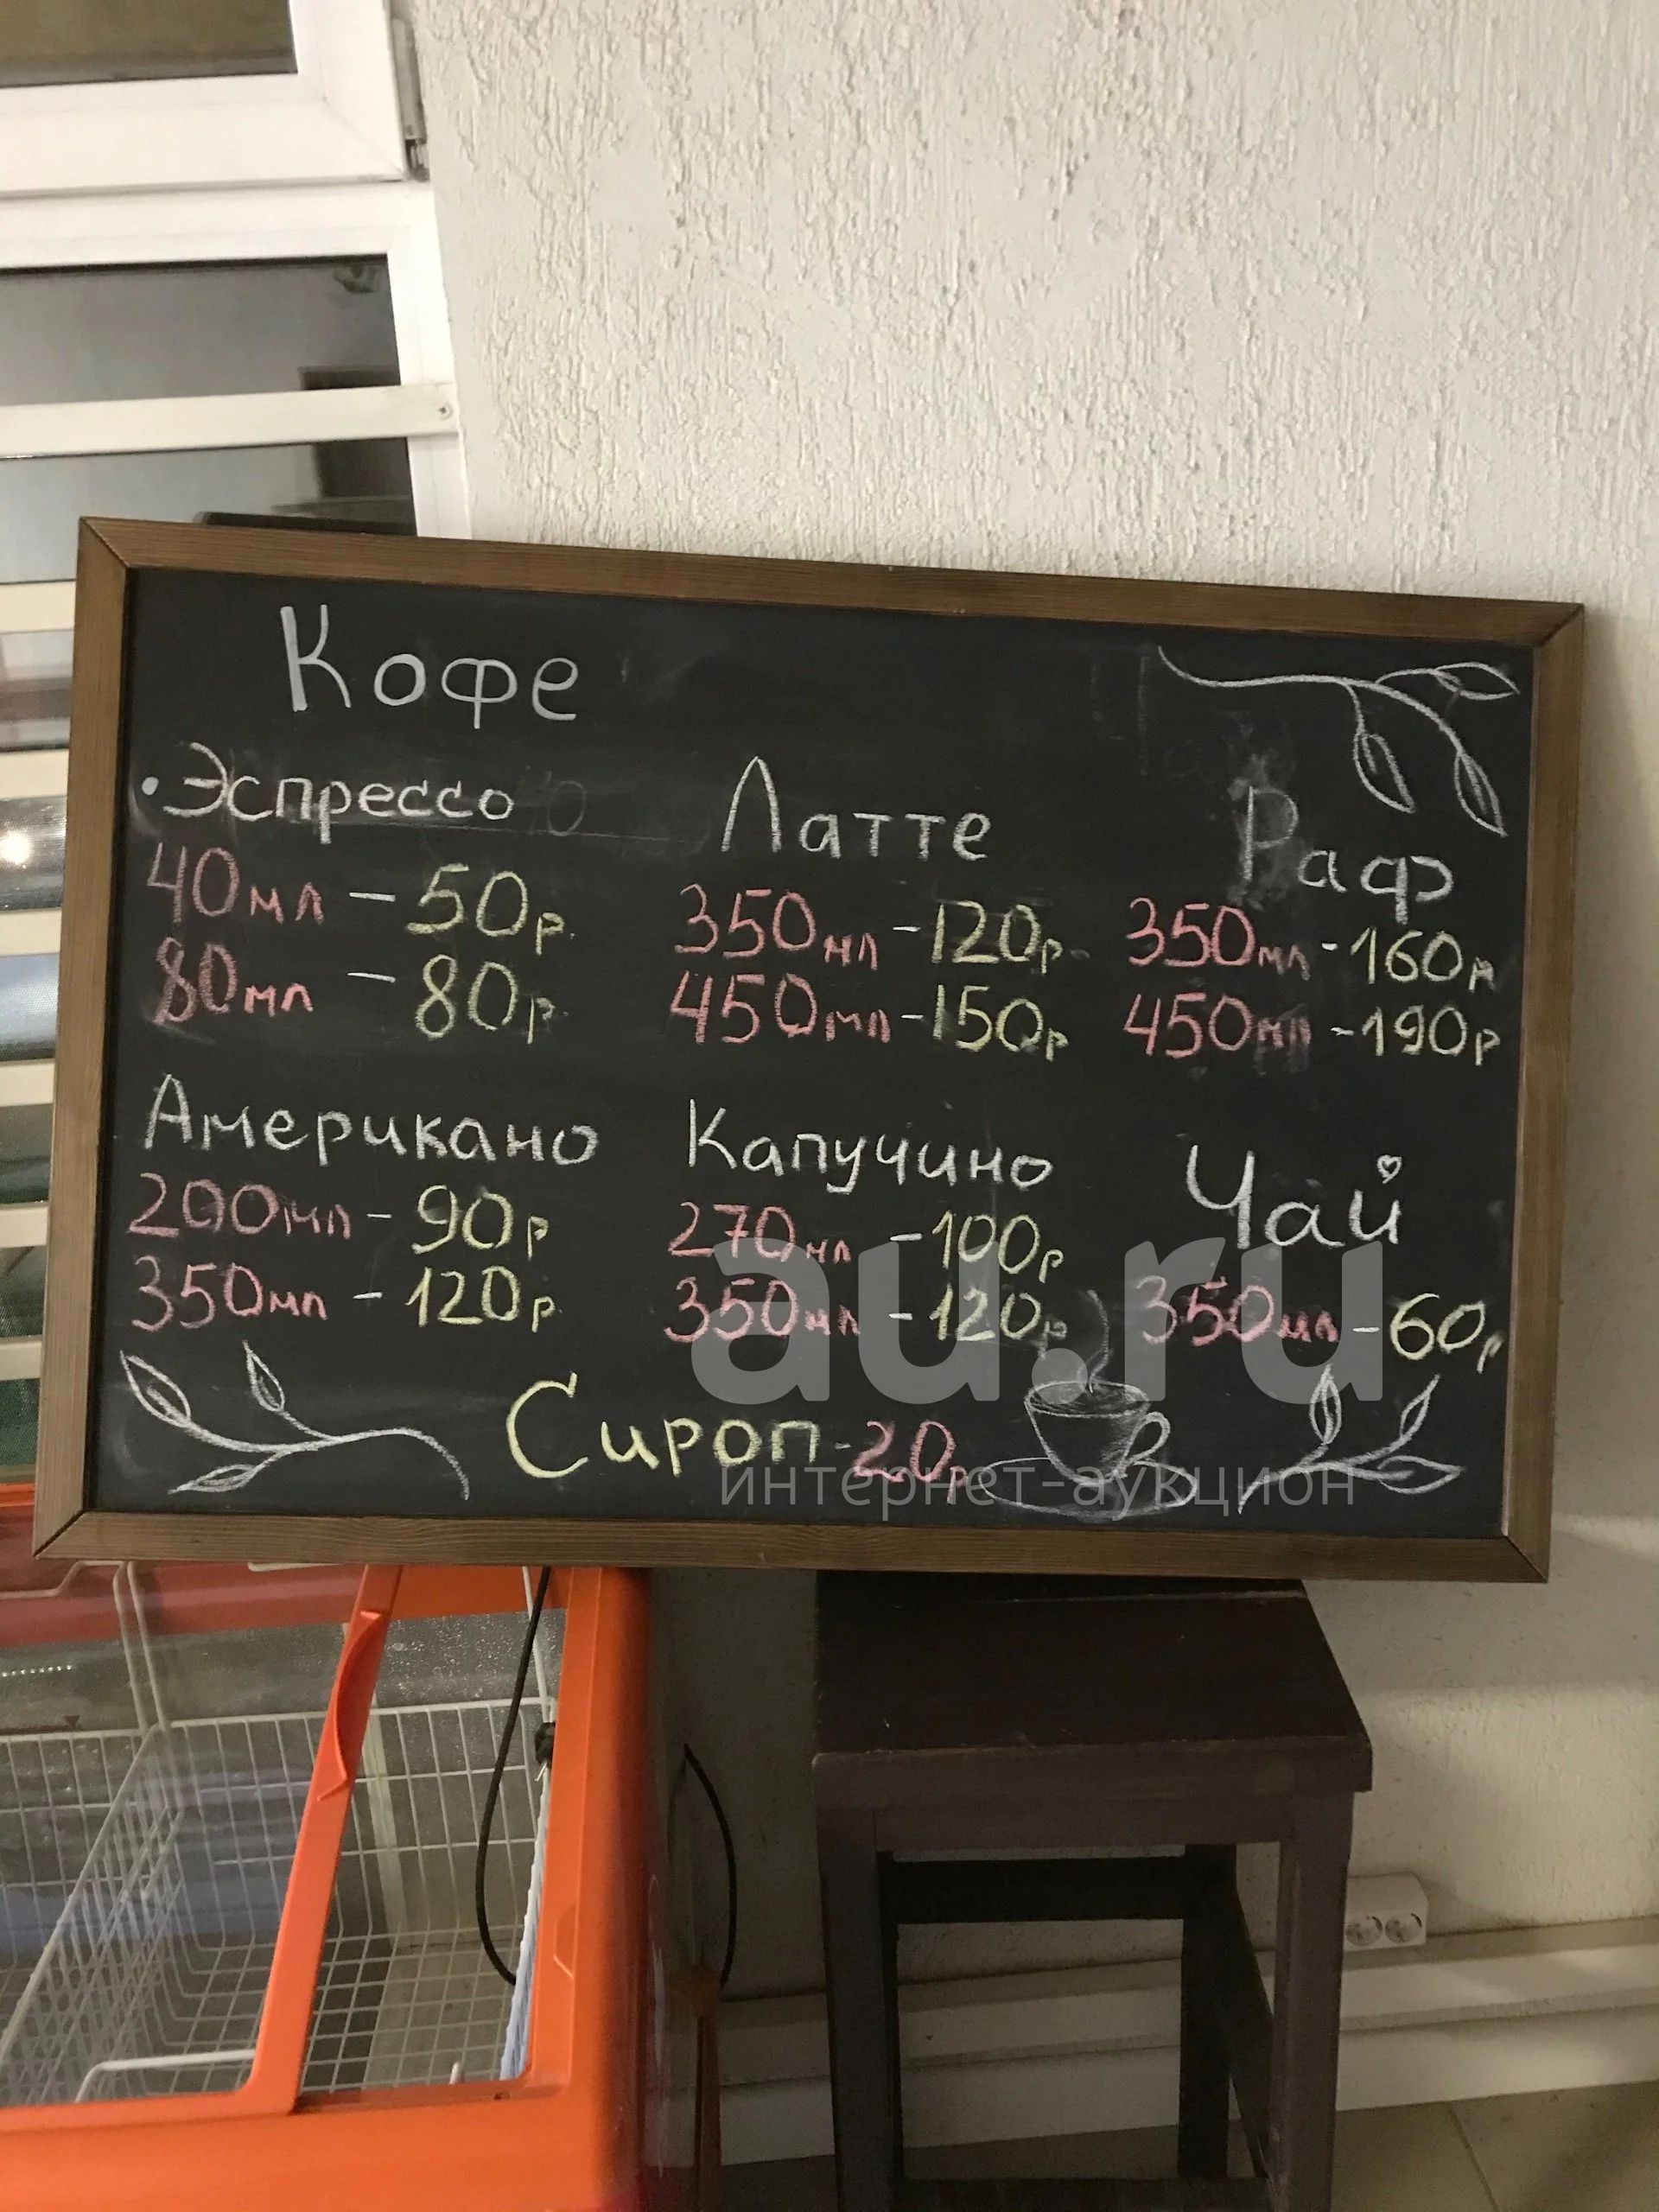 Кофе
• Эспрессо
40мл - 50р.
80мл - 80р.
Латте
350мл - 120р.
450мл - 150р
Раф
350мл - 160р
450мл - 190р
Американо
200мл - 90р
350мл - 120р.
Капучино
270мл - 100р
350мл - 120р
Чай
350мл - 60р
Сироп - 20р
au.ru
интернет-аукцион